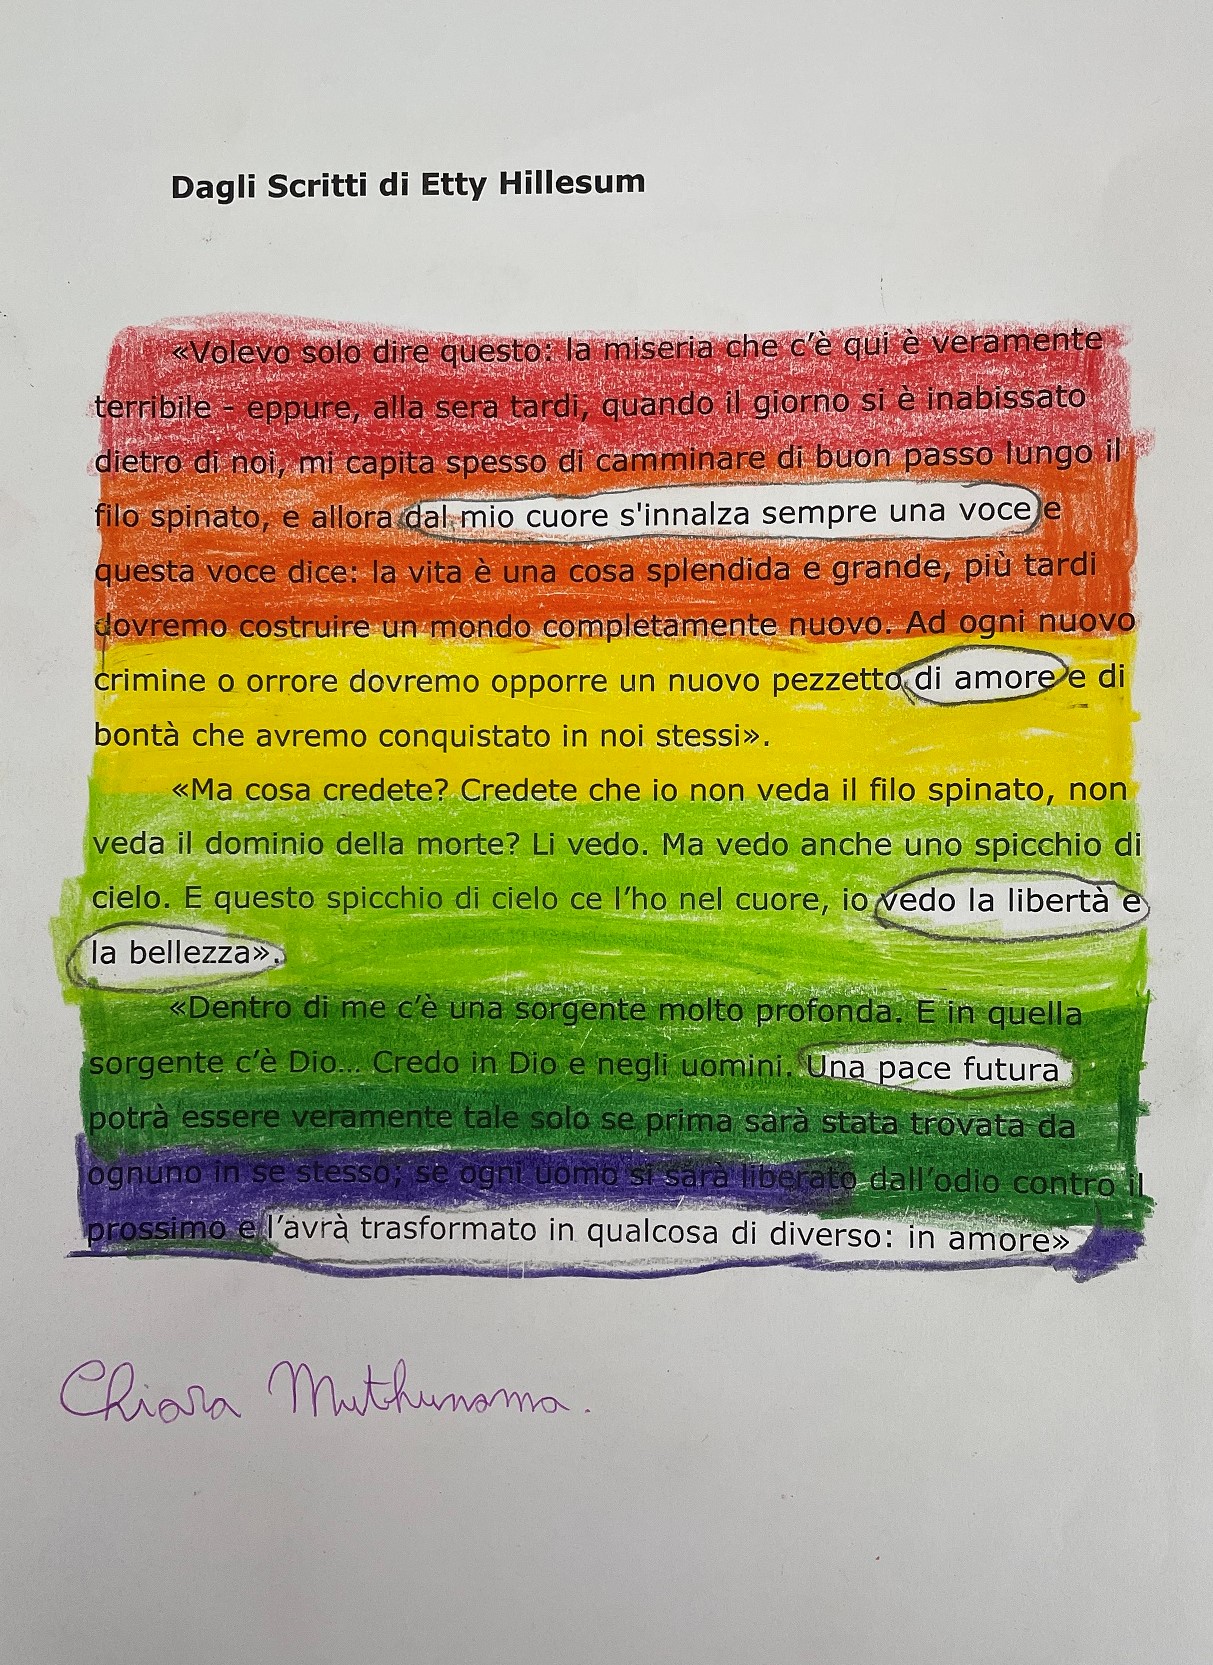 Dagli Scritti di Etty Hillesum
«Volevo solo dire questo: la miseria che c'è qui è veramente
terribile - eppure, alla sera tardi, quando il giorno si è inabissato
dietro di noi, mi capita spesso di camminare di buon passo lungo il
filo spinato, e allora dal mio cuore s'innalza sempre una voce e
questa voce dice: la vita è una cosa splendida e grande, più tardi
dovremo costruire un mondo completamente nuovo. Ad ogni nuovo
crimine o orrore dovremo opporre un nuovo pezzetto di amore e di
bontà che avremo conquistato in noi stessi».
«Ma cosa credete? Credete che io non veda il filo spinato, non
veda il dominio della morte? Li vedo. Ma vedo anche uno spicchio di
cielo. E questo spicchio di cielo ce l'ho nel cuore, io vedo la libertà e
la bellezza».
«Dentro di me c'è una sorgente molto profonda. E in quella
sorgente c'è Dio... Credo in Dio e negli uomini. Una pace futura
potrà essere veramente tale solo se prima sarà stata trovata da
ognuno in se stesso; se ogni uomo si sarà liberato dall'odio contro il
prossimo e l'avrà trasformato in qualcosa di diverso: in amore»
Chiara